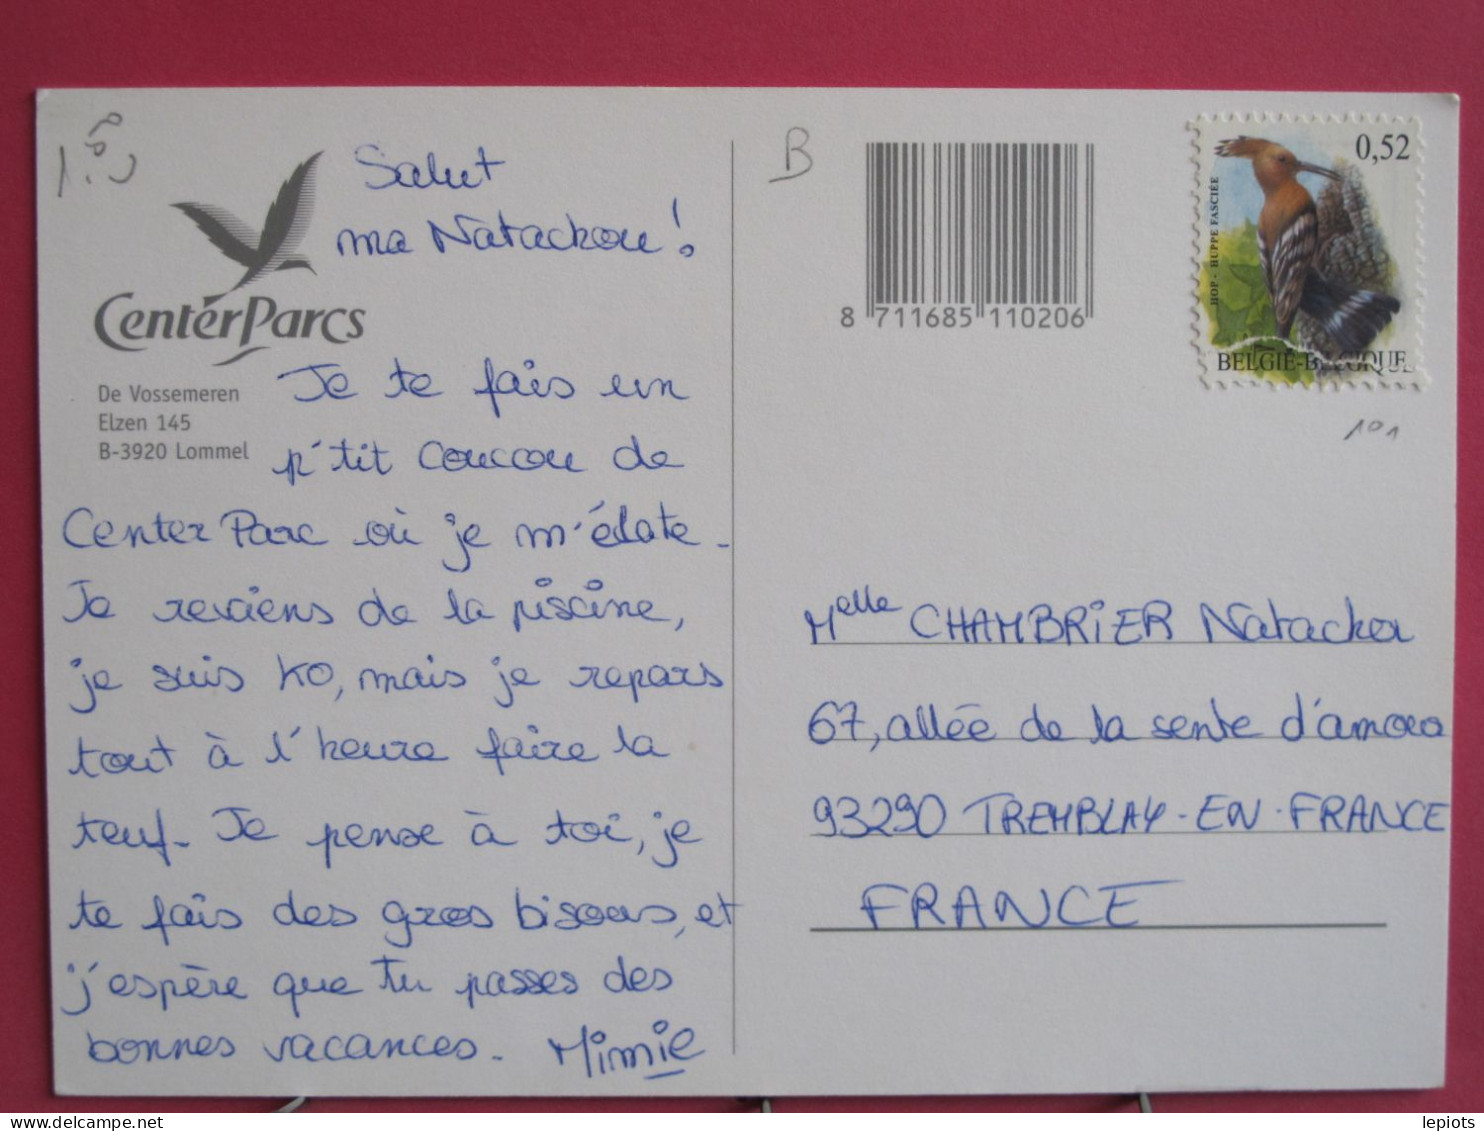 Salut
ma Natackou !
CenterParcs
De Vossemeren
Elzen 145
B-3920 Lommel
Je te fais un
p'tit coucou de
Center Parc où je m'éclate.
Je reviens de la piscine,
je suis KO, mais je repars
tout à l'heure faire la
teuf. Je pense à toi, je
te fais des gros bisous, et
j'espère que tu passes des
bonnes vacances. Mimie
B
8 711685 110206
0,52
HOP - HUPPE FASCIÉE
BELGIE-BELGIQUE
101
Melle CHAMBRIER Natacha
67, allée de la sente d'amour
93290 TREMBLAY-EN-FRANCE
FRANCE
lepiots